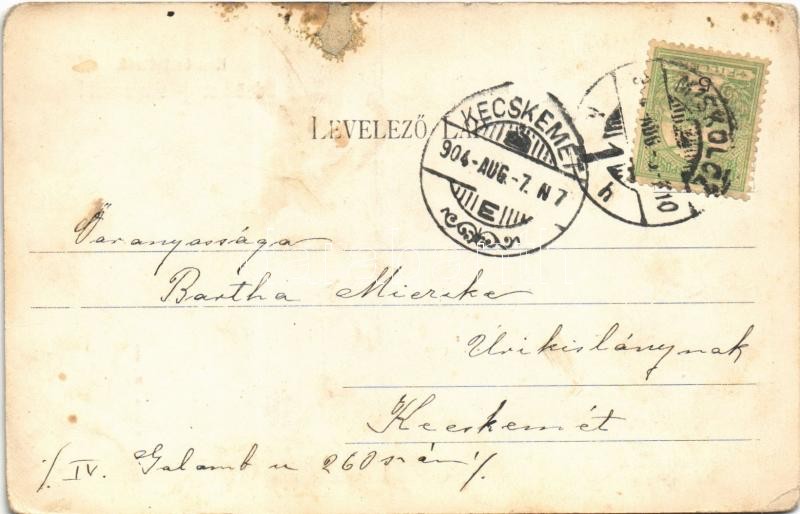 LEVELEZŐ-LAP
KECSKEMÉT
904-AUG.-7.N7
E
MISKOLC
Őaranyossága
Bartha Miczike
Úrikislánynak
Kecskemét
./. IV. Galamb u 260 szám ./.